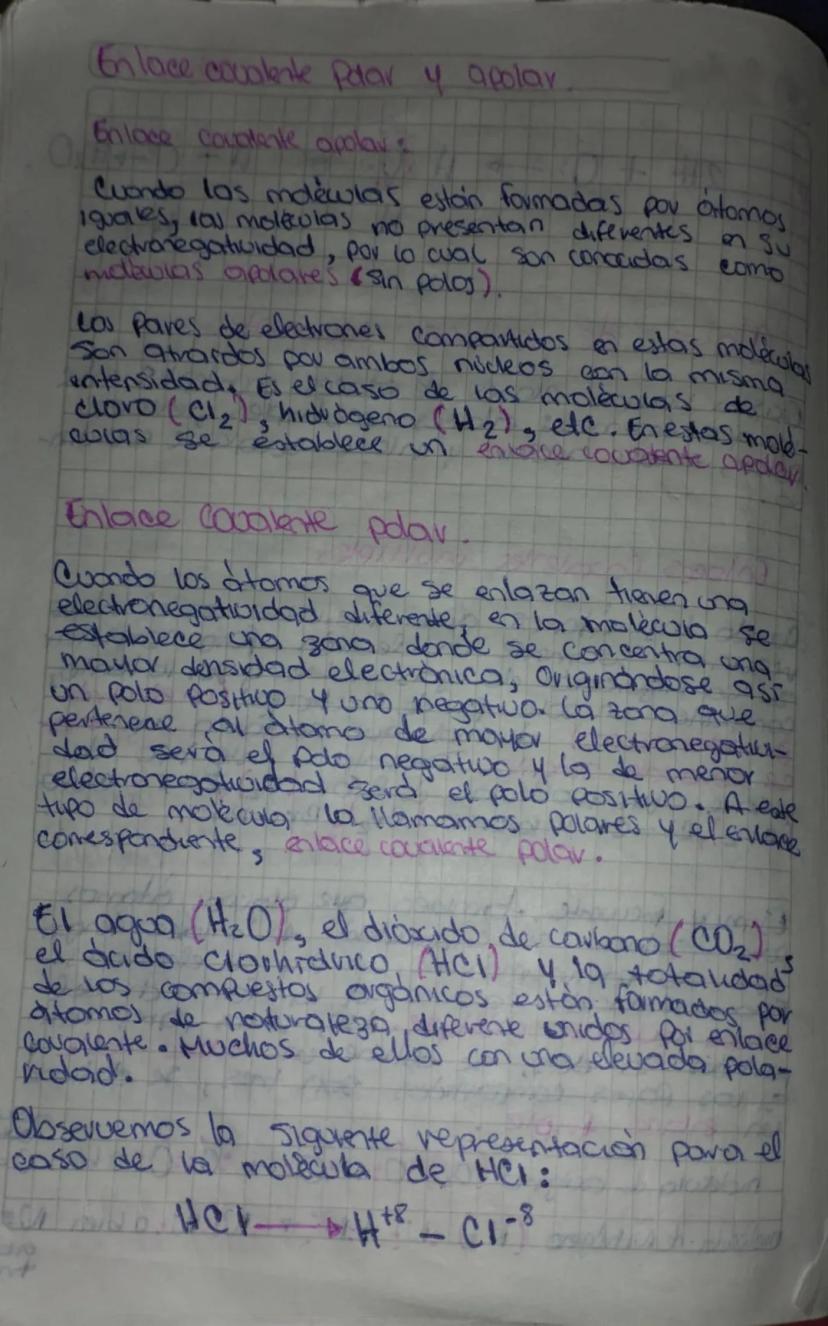 Enlace covalente polar y apolar.
Enlace covalente apolar:
Cuando las moléculas están formadas por átomos
iguales, las moléculas no presentan diferentes en su
electronegatividad, por lo cual son conocidas como
moléculas apolares (sin polos).
Los pares de electrones compartidos en estas moléculas
son atraídos por ambos núcleos con la misma
intensidad. Es el caso de las moléculas de
cloro (Cl2), hidrógeno (H2), etc. En estas molé-
culas se establece un enlace covalente apolar.
Enlace covalente polar.
Cuando los átomos que se enlazan tienen una
electronegatividad diferente, en la molécula se
establece una zona donde se concentra una
mayor densidad electrónica, originándose así
un polo positivo y uno negativo. La zona que
pertenece al átomo de mayor electronegativi-
dad será el polo negativo y la de menor
electronegatividad será el polo positivo. A este
tipo de molécula la llamamos polares y el enlace
correspondiente, enlace covalente polar.
El agua (H2O), el dióxido de carbono (CO2),
el ácido clorhídrico (HCl) y la totalidad
de los compuestos orgánicos están formados por
átomos de naturaleza diferente unidos por enlace
covalente. Muchos de ellos con una elevada pola-
ridad.
Observemos la siguiente representación para el
caso de la molécula de HCl:
HCl → H+8 – Cl-8